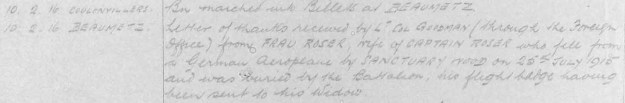 10. 2. 16 COULONVILLERS. Bn marched into Billets at BEAUMETZ.
10. 2. 16 BEAUMETZ. Letter of thanks received by Lt Col GOODMAN (through the Foreign
Office) from FRAU ROSER, wife of CAPTAIN ROSER who fell from
a German Aeroplane by SANCTUARY WOOD on 25th JULY 1915
and was buried by the Battalion, his flight badge having
been sent to his Widow.